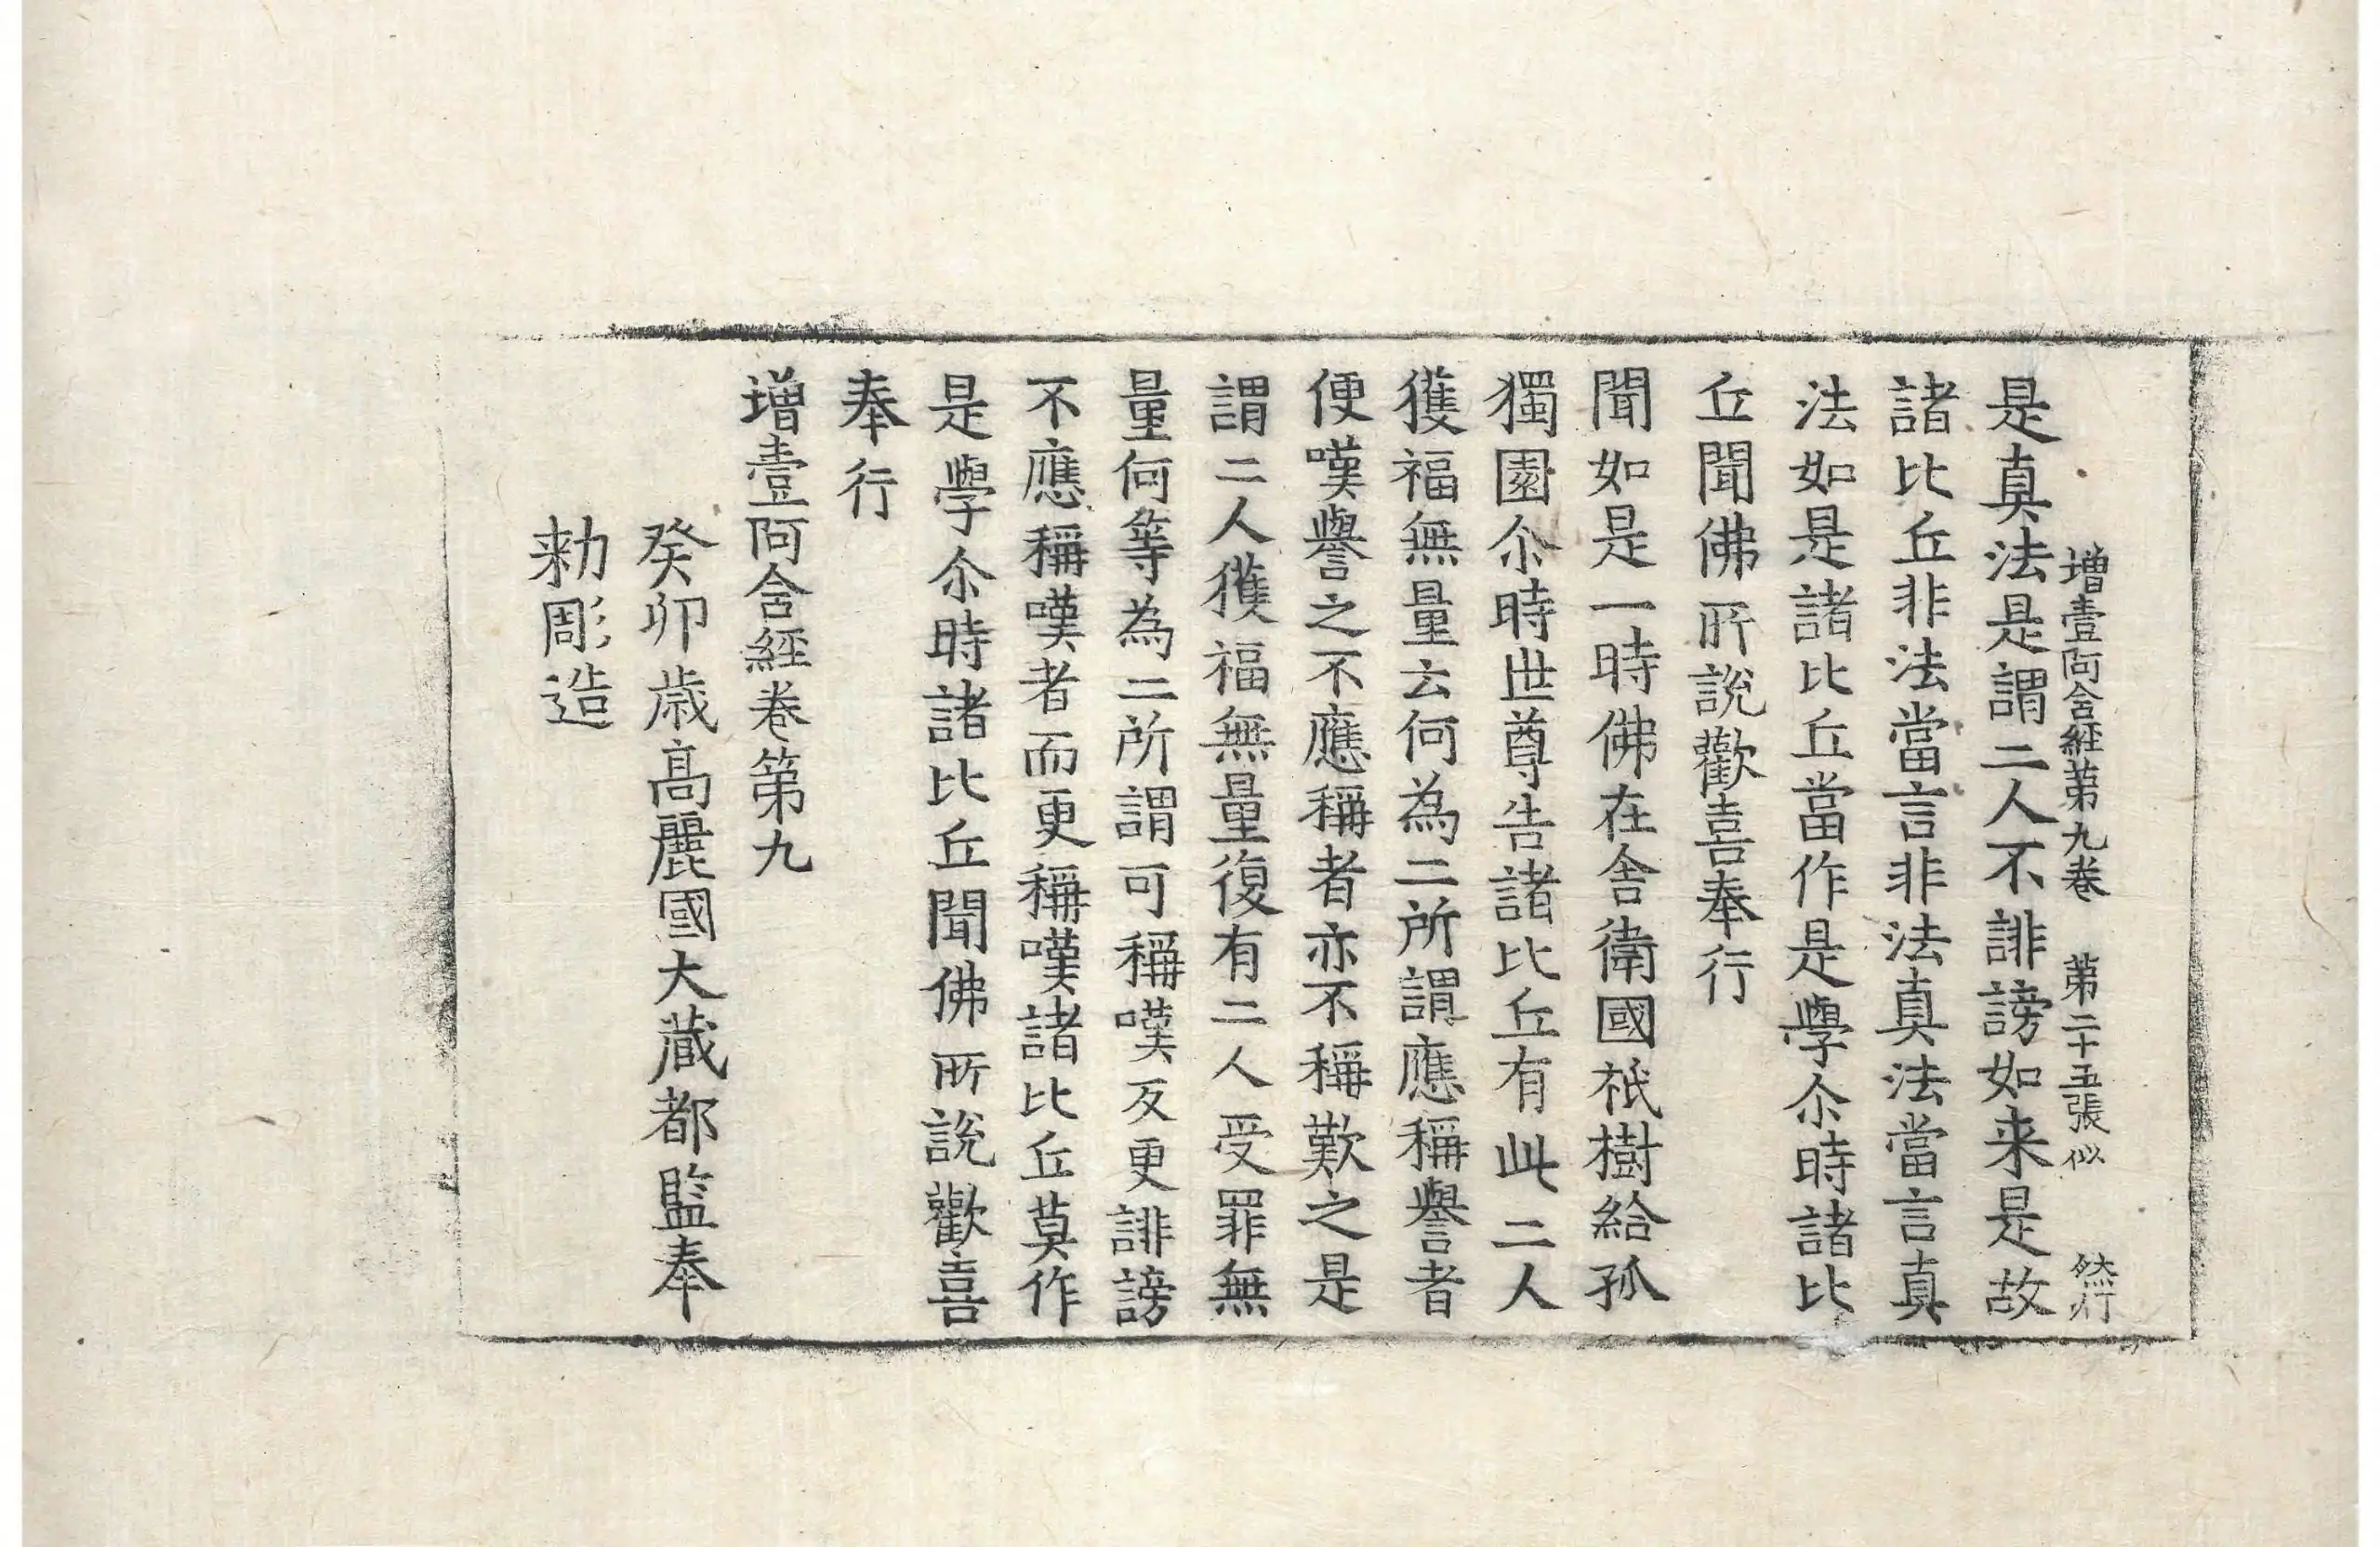 增壹阿含經第九卷　第二十五張　似　然行
是真法是謂二人不誹謗如来是故
諸比丘非法當言非法真法當言真
法如是諸比丘當作是學尒時諸比
丘聞佛所說歡喜奉行
聞如是一時佛在舍衛國祇樹給孤
獨園尒時世尊告諸比丘有此二人
獲福無量云何為二所謂應稱譽者
便嘆譽之不應稱者亦不稱歎之是
謂二人獲福無量復有二人受罪無
量何等為二所謂可稱嘆反更誹謗
不應稱嘆者而更稱嘆諸比丘莫作
是學尒時諸比丘聞佛所說歡喜
奉行
增壹阿含經卷第九
癸卯歳高麗國大藏都監奉
勅彫造